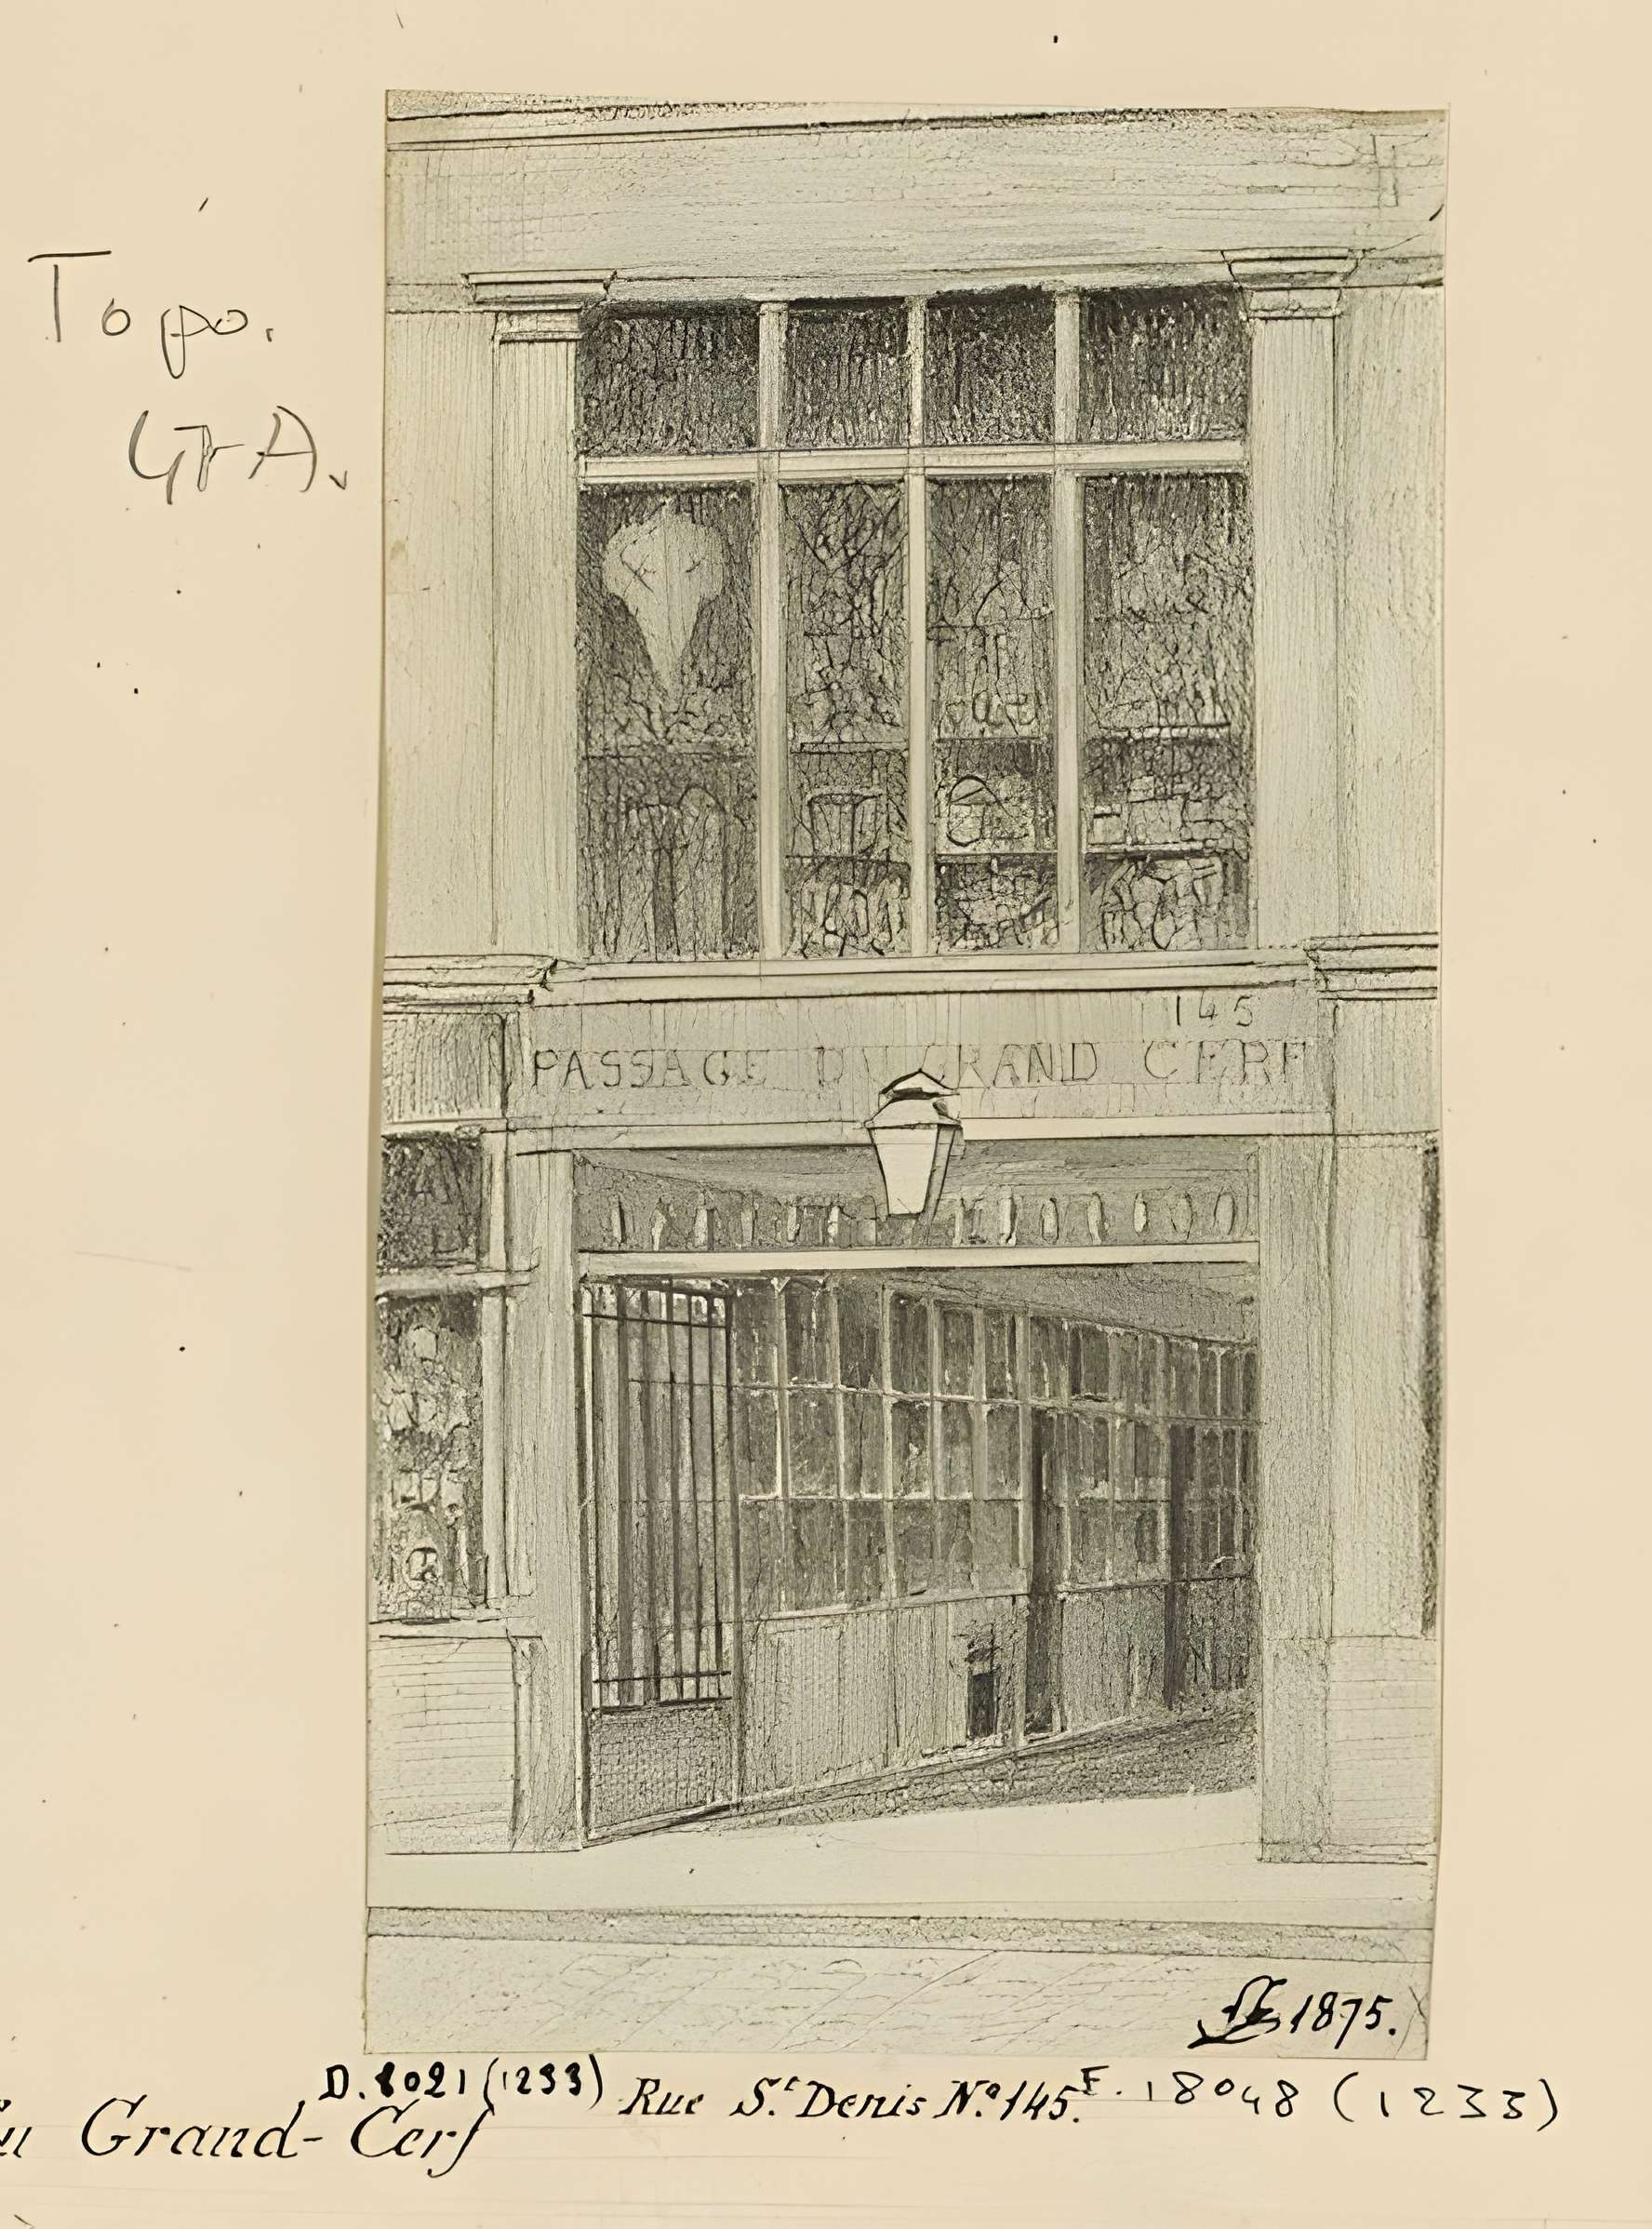 Topo.
GFA.
145
PASSAGE DU GRAND CERF
1875.
D.8021 (1233) Rue St. Denis No. 145. E. 18048 (1233)
Grand-Cerf